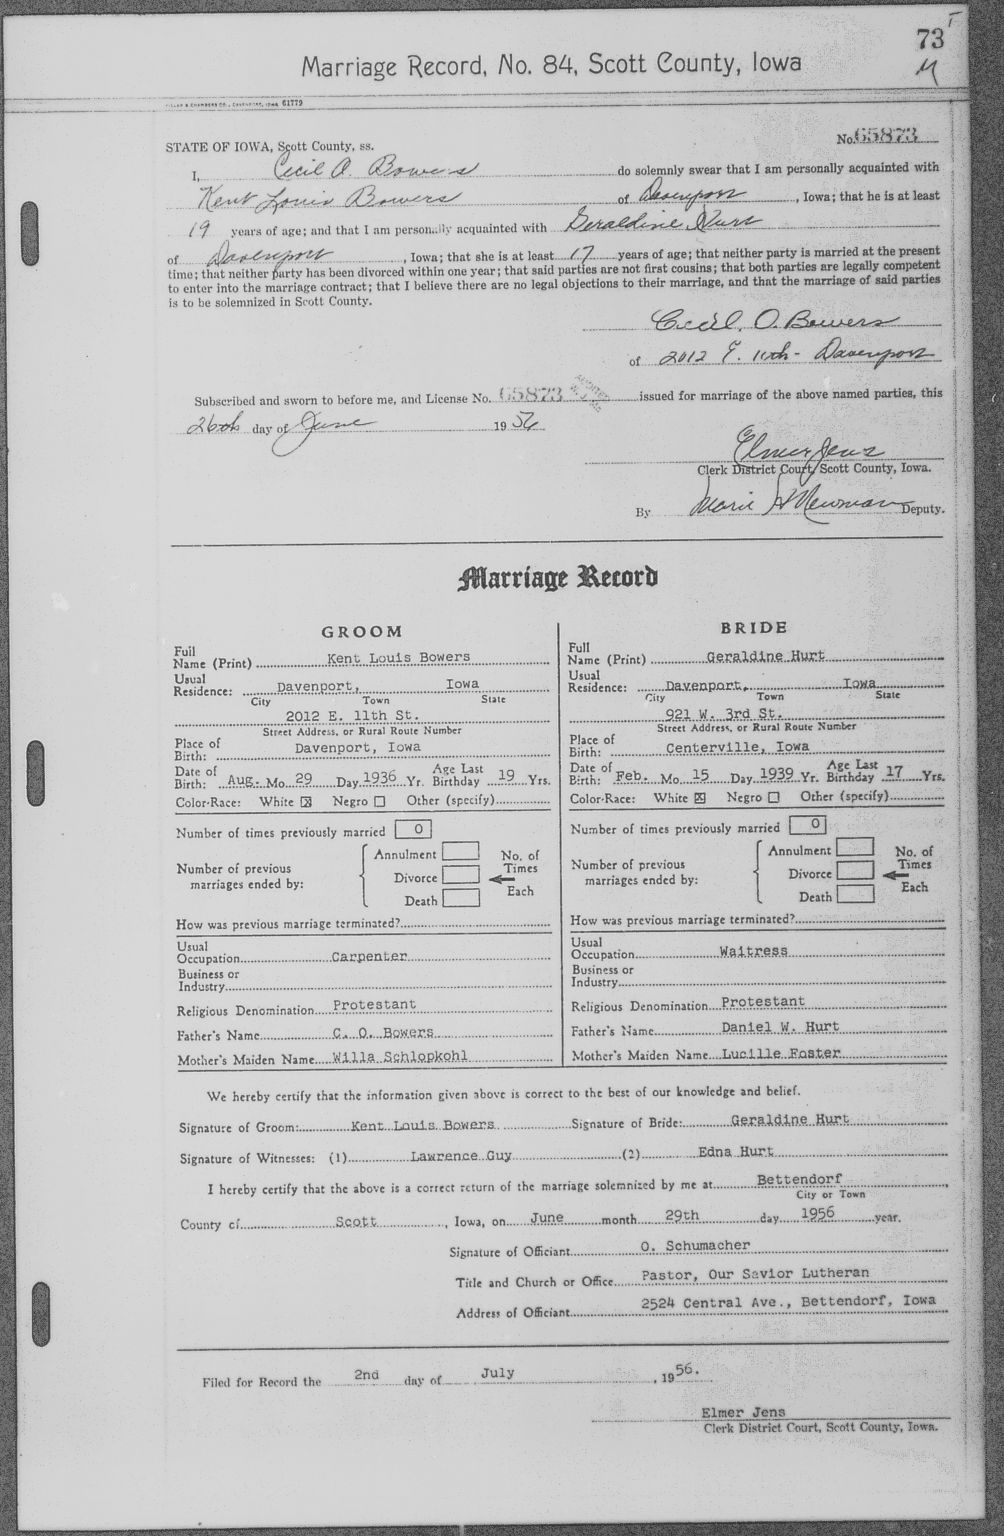 73
Marriage Record, No. 84, Scott County, Iowa
M
& CHAMBERS CO., DAVENPORT, IOWA 61779
No. 65873
STATE OF IOWA, Scott County, ss.
I, Cecil O. Bowers do solemnly swear that I am personally acquainted with
Kent Louis Bowers of Davenport, Iowa; that he is at least
19 years of age; and that I am personally acquainted with Geraldine Hurt
of Davenport, Iowa; that she is at least 17 years of age; that neither party is married at the present
time; that neither party has been divorced within one year; that said parties are not first cousins; that both parties are legally competent
to enter into the marriage contract; that I believe there are no legal objections to their marriage, and that the marriage of said parties
is to be solemnized in Scott County.
Cecil O. Bowers
of 2012 E. 11th - Davenport
Subscribed and sworn to before me, and License No. 65873 issued for marriage of the above named parties, this
26th day of June 1956
Elmer Jens
Clerk District Court, Scott County, Iowa.
By Marie H Newman Deputy.
Marriage Record
GROOM
Full
Name (Print) Kent Louis Bowers
Usual
Residence: Davenport, Iowa
City Town State
2012 E. 11th St.
Street Address, or Rural Route Number
Place of
Birth: Davenport, Iowa
Date of Birth: Aug. Mo. 29 Day 1936 Yr. Age Last Birthday 19 Yrs.
Color-Race: White ☒ Negro ☐ Other (specify)
Number of times previously married 0
Number of previous
marriages ended by:
Annulment
Divorce
Death
No. of
Times
Each
How was previous marriage terminated?
Usual
Occupation Carpenter
Business or
Industry
Religious Denomination Protestant
Father's Name C. O. Bowers
Mother's Maiden Name Willa Schlopkohl
BRIDE
Full
Name (Print) Geraldine Hurt
Usual
Residence: Davenport, Iowa
City Town State
921 W. 3rd St.
Street Address, or Rural Route Number
Place of
Birth: Centerville, Iowa
Date of Birth: Feb. Mo. 15 Day 1939 Yr. Age Last Birthday 17 Yrs.
Color-Race: White ☒ Negro ☐ Other (specify)
Number of times previously married 0
Number of previous
marriages ended by:
Annulment
Divorce
Death
No. of
Times
Each
How was previous marriage terminated?
Usual
Occupation Waitress
Business or
Industry
Religious Denomination Protestant
Father's Name Daniel W. Hurt
Mother's Maiden Name Lucille Foster
We hereby certify that the information given above is correct to the best of our knowledge and belief.
Signature of Groom: Kent Louis Bowers Signature of Bride: Geraldine Hurt
Signature of Witnesses: (1) Lawrence Guy (2) Edna Hurt
I hereby certify that the above is a correct return of the marriage solemnized by me at Bettendorf
City or Town
County of Scott, Iowa, on June month 29th day 1956 year.
Signature of Officiant O. Schumacher
Title and Church or Office Pastor, Our Savior Lutheran
Address of Officiant 2524 Central Ave., Bettendorf, Iowa
Filed for Record the 2nd day of July, 1956.
Elmer Jens
Clerk District Court, Scott County, Iowa.